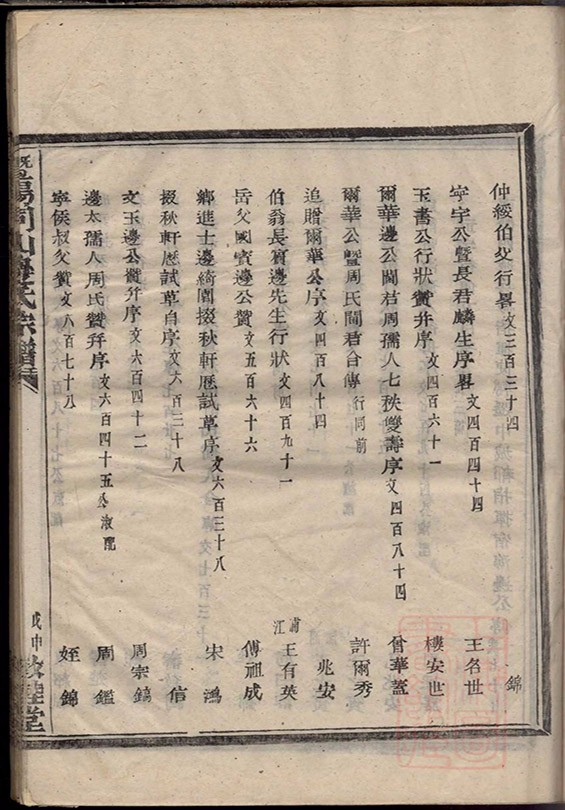 仲綏伯父行畧 文三百三十四 錦
寧宇公暨長君麟生序畧 文四百四十四 王名世
玉書公行狀贊并序 文四百六十一 樓安世
爾華邊公閫君周孺人七秩雙壽序 文四百八十四 曾華蓋
爾華公暨周氏閫君合傳 行同前 許爾秀
追贈爾華公序 文四百八十四 兆安
伯翁長寶邊先生行狀 文四百九十一 浦江 王有英
岳父國賓邊公贊 文五百六十六 傅祖成
鄉進士邊綺園掇秋軒歷試草序 文六百三十八 宋鴻
掇秋軒歷試草自序 文六百三十八 信
文玉邊公贊并序 文六百四十二 周宗鎬
邊太孺人周氏贊并序 文六百四十五 公淑配 周鑑
寧侯叔父贊 文六百七十八 姪錦
宗譜
戊申 敘睦堂